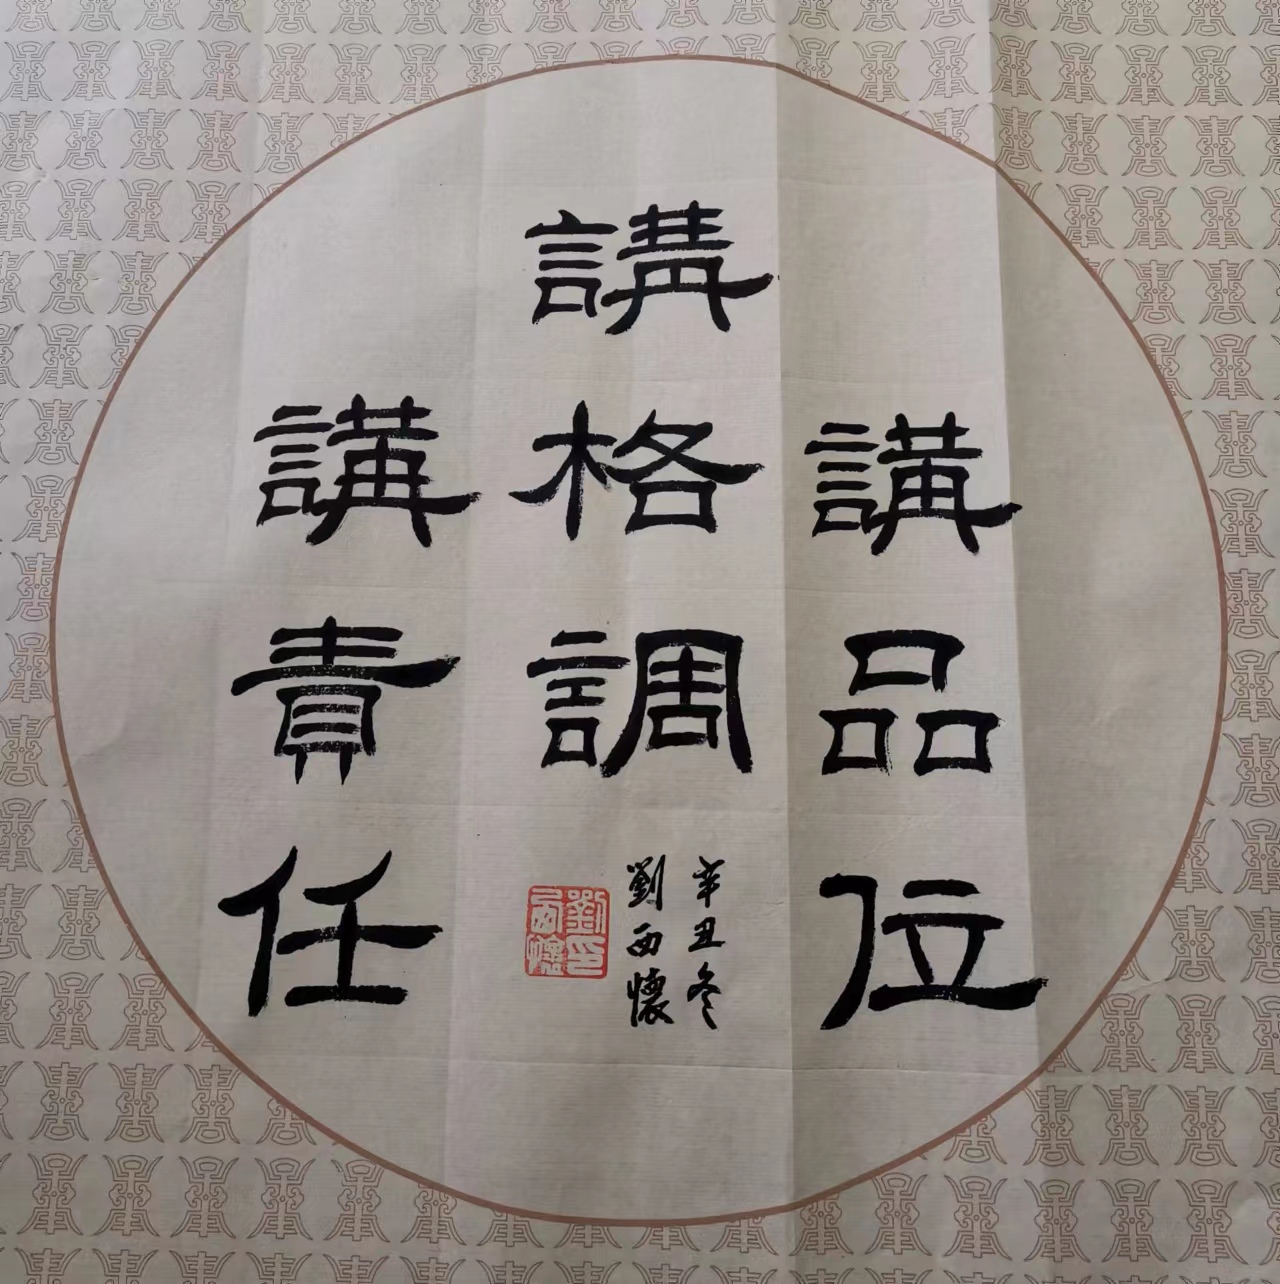 講品位
講格調
講責任
辛丑冬
劉西懷
劉印
西懷